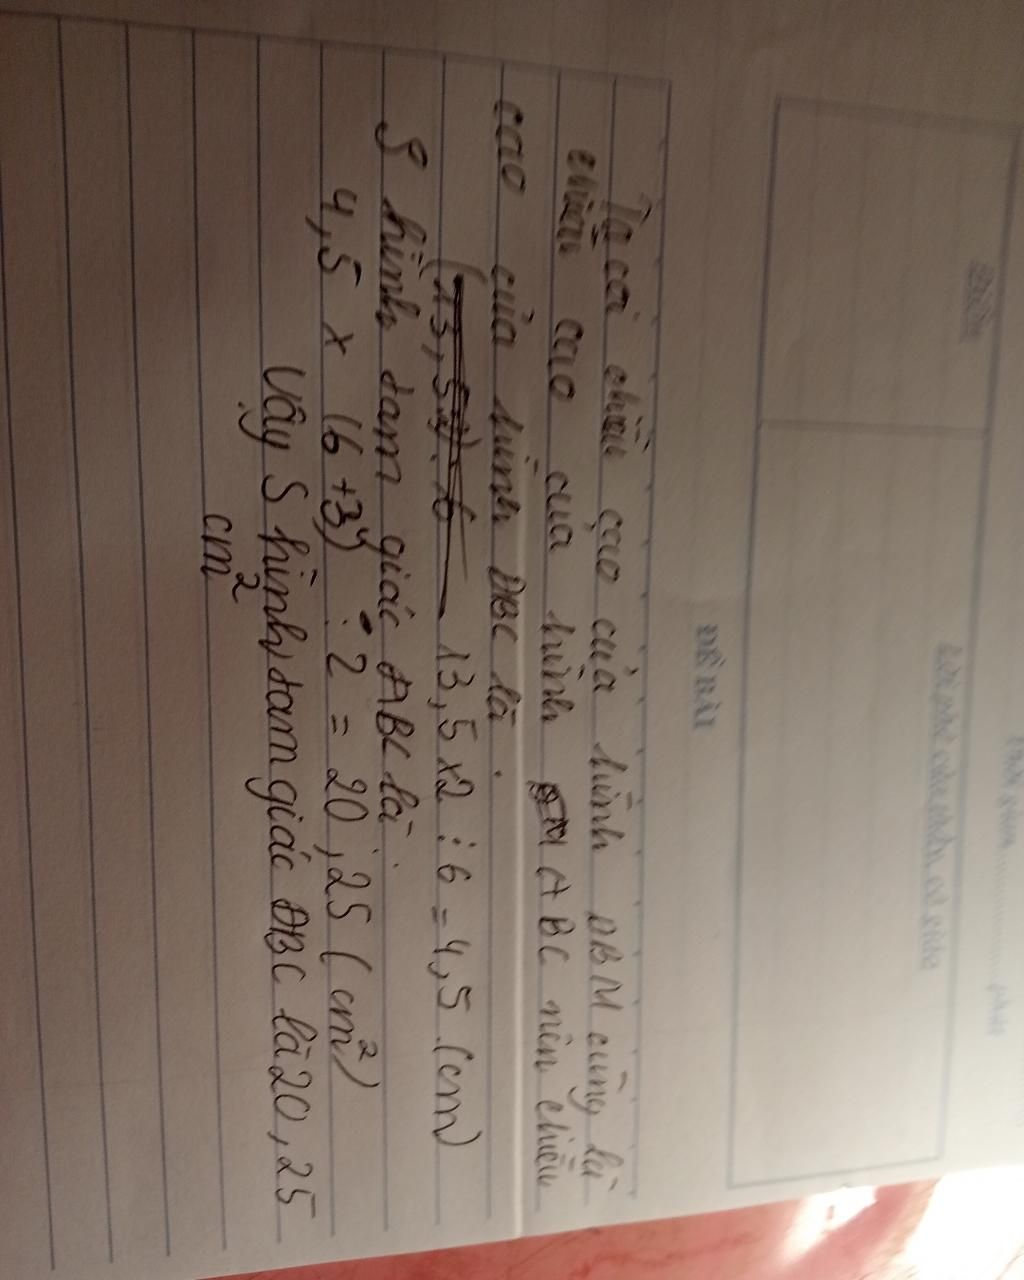 Thời gian ............ phút
Điểm
Lời phê của thầy, cô giáo
ĐỀ BÀI
Ta có chiều cao của hình ABM cũng là
chiều cao của hình ABC nên chiều
cao của hình ABC là:
13,5 x 2 : 6 = 4,5 (cm)
S hình tam giác ABC là:
4,5 x (6 + 3) : 2 = 20,25 (cm²)
Vậy S hình tam giác ABC là 20,25
cm²